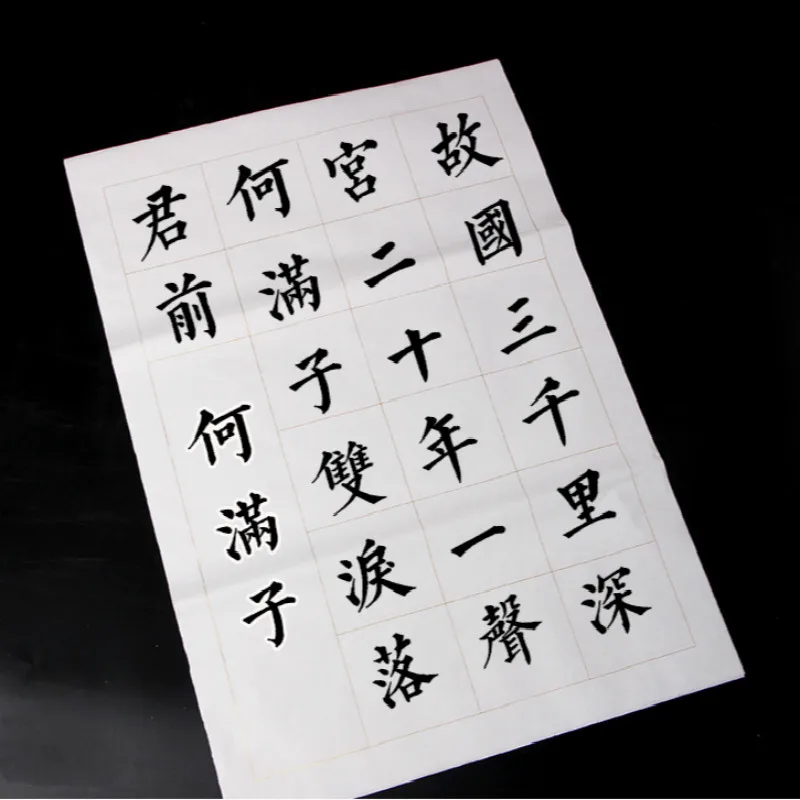 故國三千里深
宮二十年一聲
何滿子雙淚落
君前
何滿子